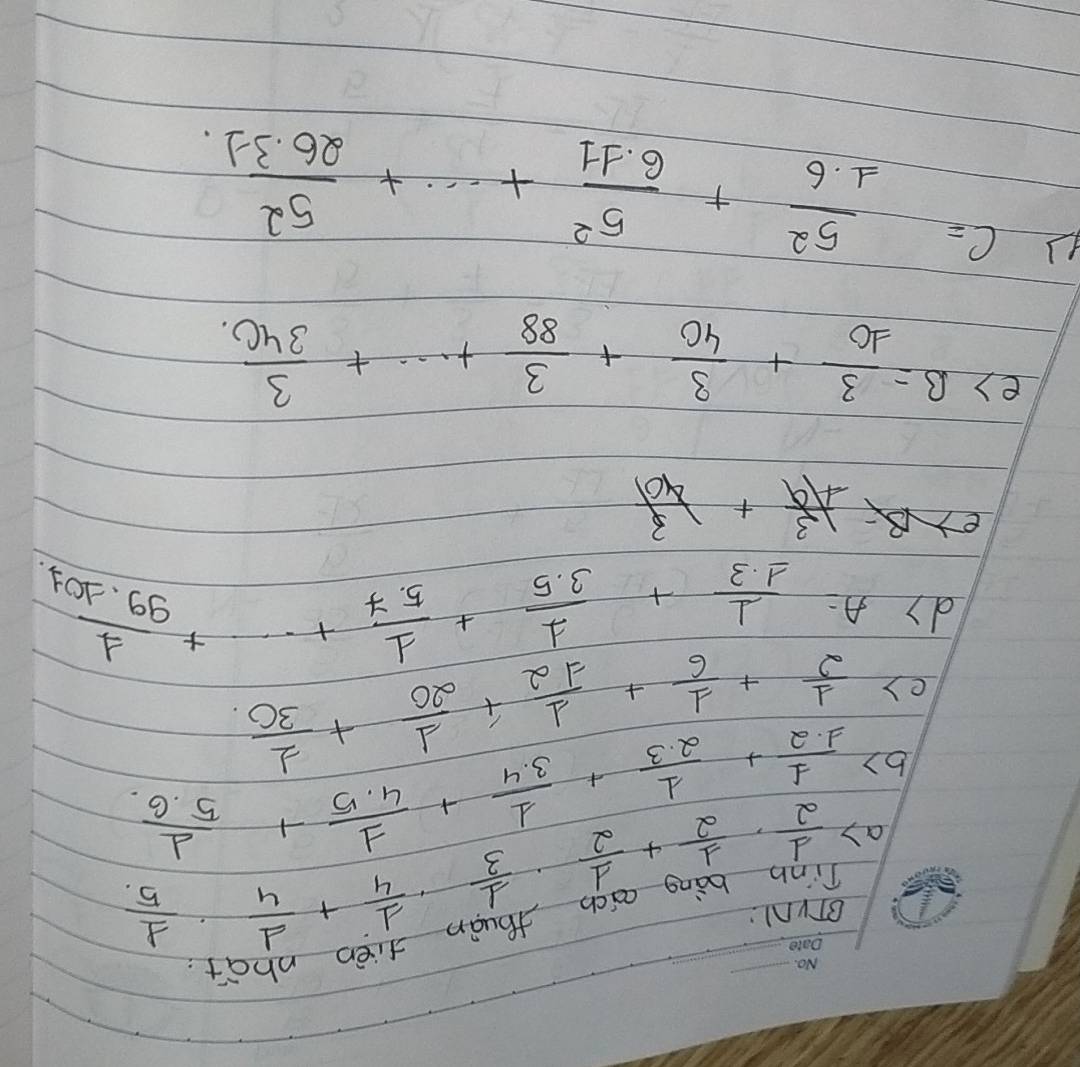 No.
Date
BTVN:
Tính bằng cách thuận tiện nhất:
a> 1/2 . 1/2 + 1/2 . 1/3 . 1/4 + 1/4 . 1/5.
b> 1/1.2 + 1/2.3 + 1/3.4 + 1/4.5 + 1/5.6.
c> 1/2 + 1/6 + 1/12 + 1/20 + 1/30.
d> A = 1/1.3 + 1/3.5 + 1/5.7 + ... + 1/99.101.
e> B = 3/10 + 3/40
e> B = 3/10 + 3/40 + 3/88 + ... + 3/340.
C = 5²/1.6 + 5²/6.11 + ... + 5²/26.31.